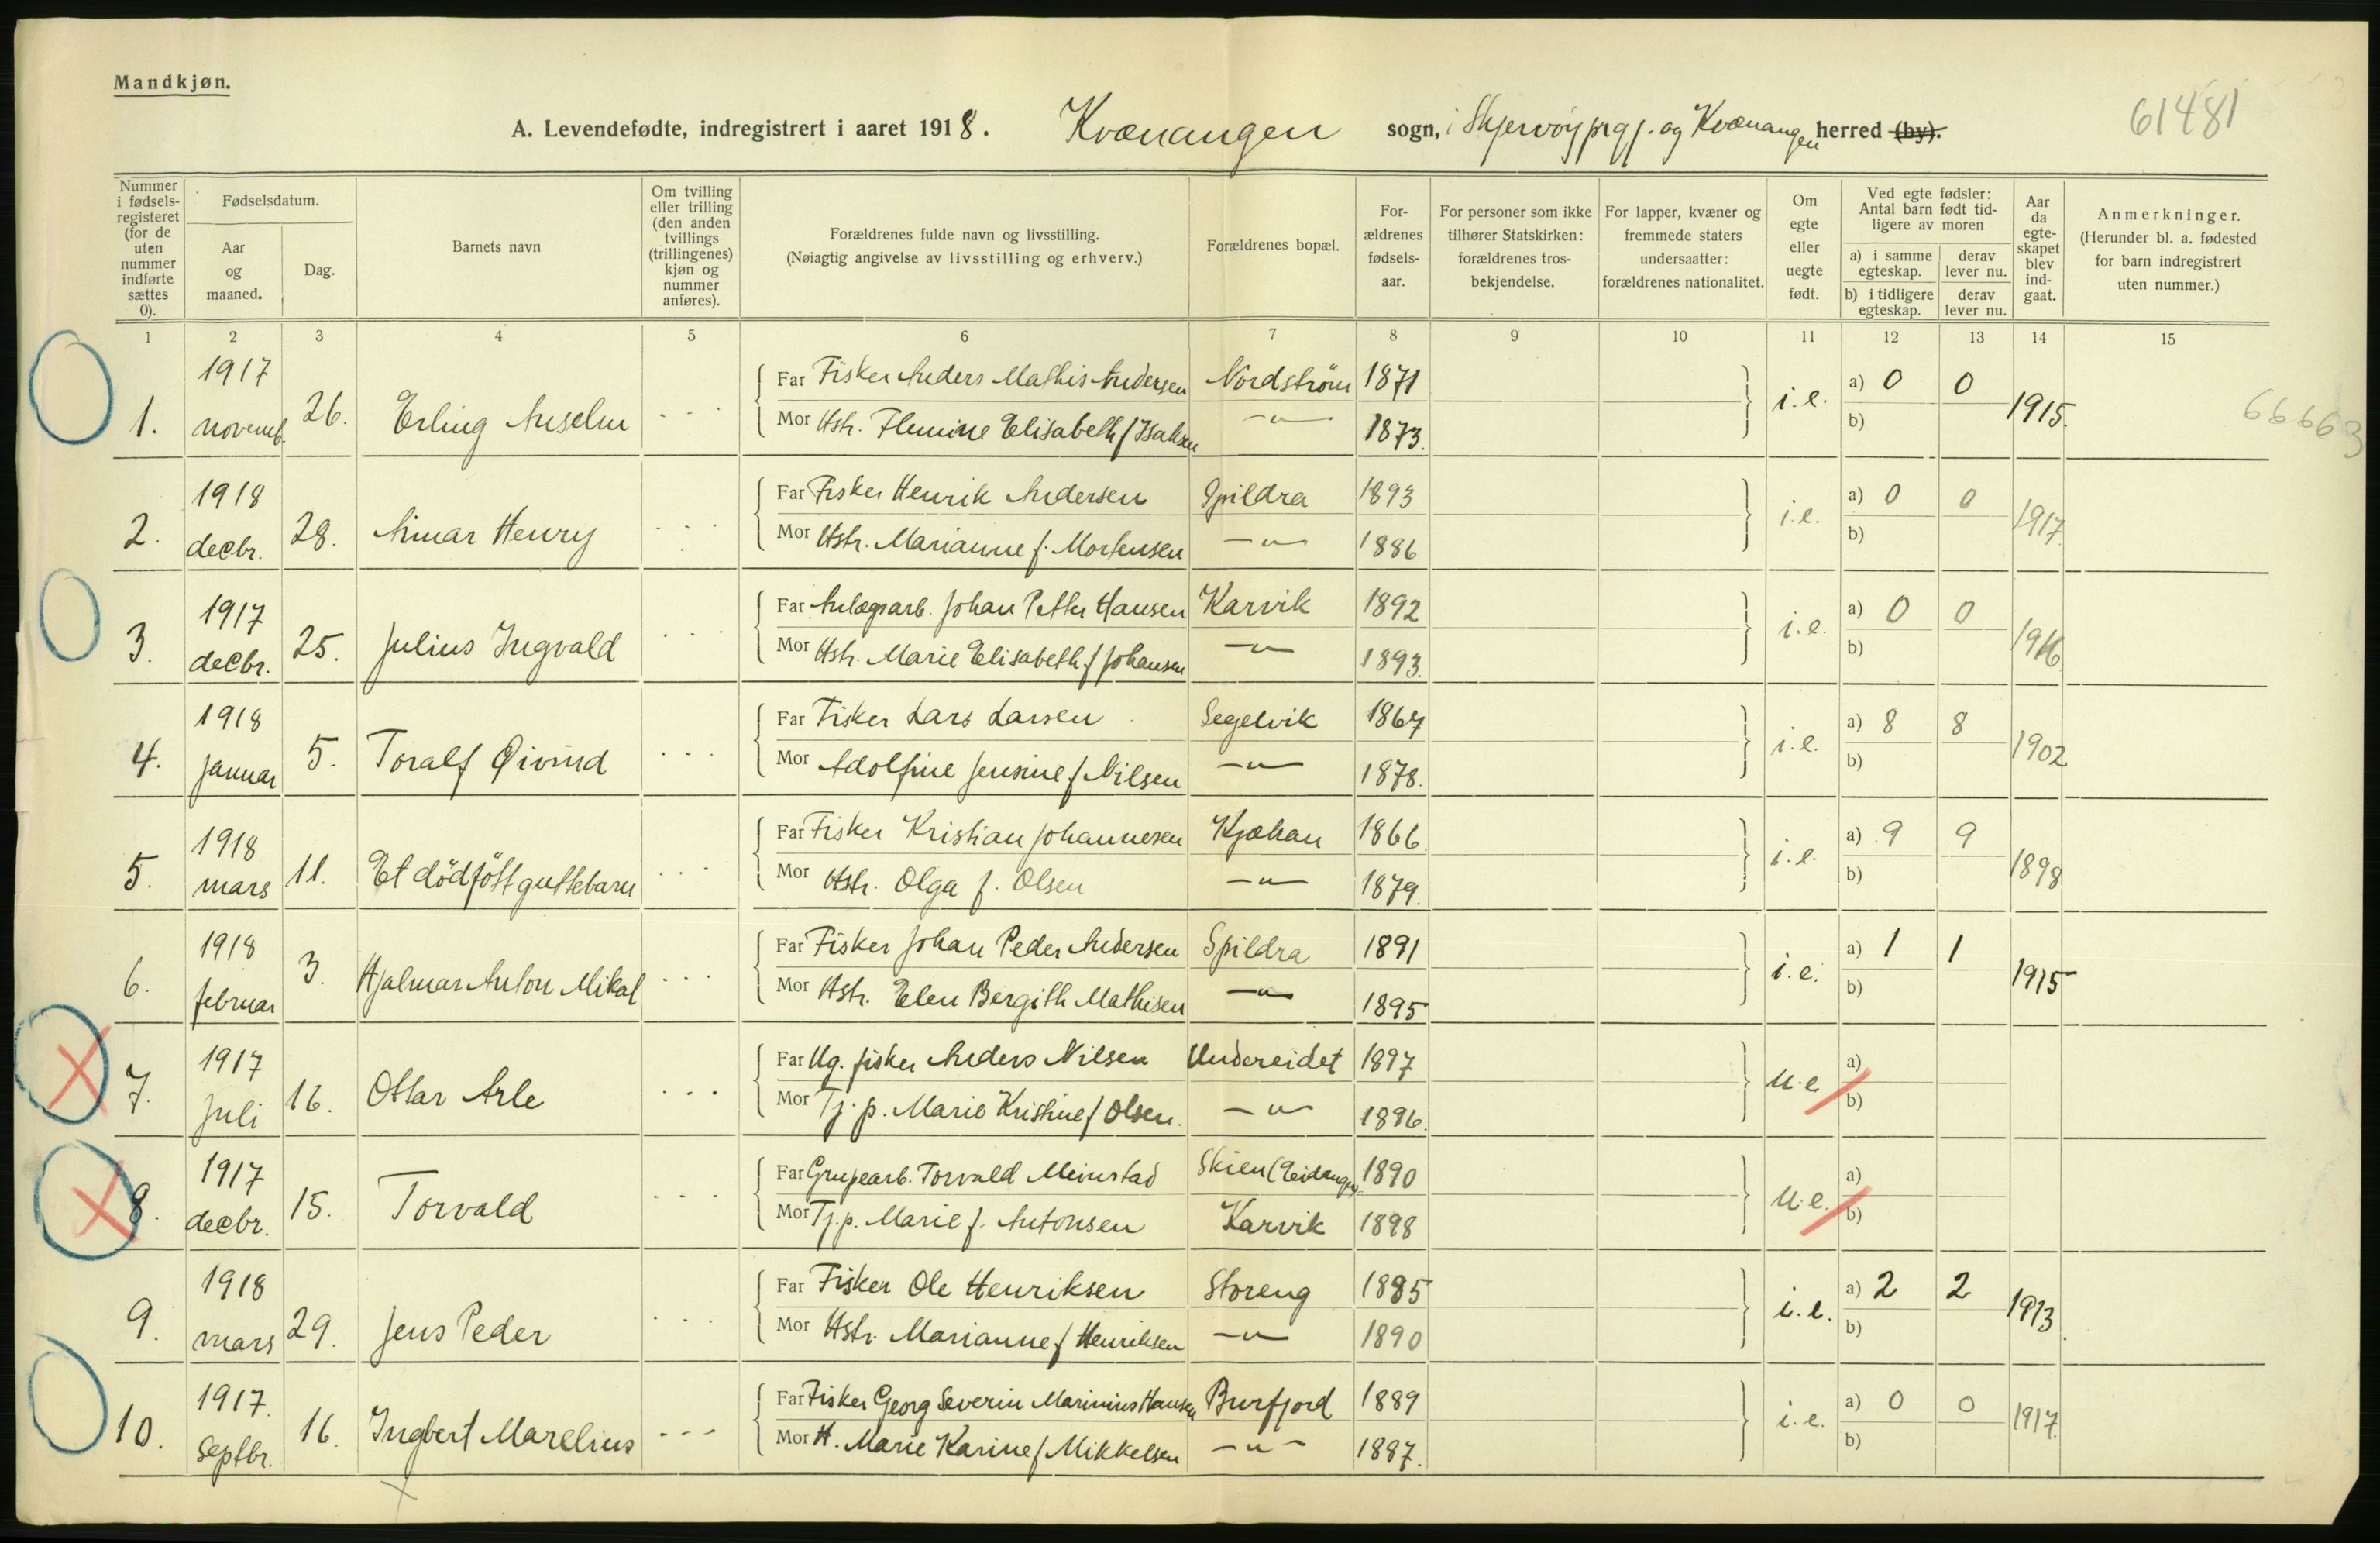 Mandkjøn.
A. Levendefødte, indregistrert i aaret 1918. Kvænangen sogn, i Skjervöy prgj. og Kvænangen herred (by).
61481
Nummer i fødsels-registeret (for de uten nummer indførte sættes 0).
Fødselsdatum.
Aar og maaned.
Dag.
Barnets navn
Om tvilling eller trilling (den anden tvillings (trillingenes) kjøn og nummer anføres).
Forældrenes fulde navn og livsstilling.
(Nøiagtig angivelse av livsstilling og erhverv.)
Forældrenes bopæl.
For-ældrenes fødsels-aar.
For personer som ikke tilhører Statskirken: forældrenes tros-bekjendelse.
For lapper, kvæner og fremmede staters undersaatter: forældrenes nationalitet.
Om egte eller uegte født.
Ved egte fødsler: Antal barn født tid-ligere av moren
a) i samme egteskap.
derav lever nu.
b) i tidligere egteskap.
derav lever nu.
Aar da egte-skapet blev ind-gaat.
Anmerkninger.
(Herunder bl. a. fødested for barn indregistrert uten nummer.)
1 2 3 4 5 6 7 8 9 10 11 12 13 14 15
1917 Far Fisker Anders Mathis Andersen Nordström 1871 a) 0 0
1. novemb. 26. Erling Anselm - - - Mor Hstr. Elisabeth f Isaksen —"— 1873. i.e. b) 1915.
66663
1918 Far Fisker Henrik Andersen Spildra 1893 a) 0 0
2. decbr. 28. Henry - - - Mor Hstr. Marianne f. Mortensen —"— 1886 i.e. b) 1917.
1917 Far Anlægsarb. Johan Petter Hansen Karvik 1892 a) 0 0
3. decbr. 25. Julius Ingvald - - - Mor Hstr. Marie Elisabeth f Johansen —"— 1893. i.e. b) 1916
1918 Far Fisker Lars Larsen Segelvik 1867 a) 8 8
4. januar 5. Toralf Øivind - - - Mor Adolfine Jensine f Nilsen —"— 1878. i.e. b) 1902
1918 Far Fisker Kristian Johannesen Kjækan 1866. a) 9 9
5. mars 11. Et dödfött guttebarn - - - Mor Hstr. Olga f. Olsen —"— 1879. i.e. b) 1898
1918 Far Fisker Johan Peder Andersen Spildra 1891 a) 1 1
6. februar 3. Hjalmar Anton Mikal - - - Mor Hstr. Elen Bergith Mathisen —"— 1895 i.e. b) 1915
1917 Far Ug. fisker Anders Nilsen Undereidet 1897 a)
7. juli 16. Ottar Arle - - - Mor Tj.p. Marie Kristine f Olsen. —"— 1896. u.e b)
1917 Far Grubearb. Torvald Skien (Eidanger) 1890 a)
8. decbr. 15. Torvald - - - Mor Tj.p. Marie f. Antonsen Karvik 1898 u.e. b)
1918 Far Fisker Ole Henriksen Storeng 1885 a) 2 2
9. mars 29. Jens Peder - - - Mor Hstr. Marianne f Henriksen —"— 1890 i.e. b) 1913.
1917. Far Fisker Georg Severin Marinius Hansen Burfjord 1889 a) 0 0
10. Septbr. 16. Ingbert Marelius - - - Mor H. Marie Karine f Mikkelsen —"— 1887. i.e. b) 1917.